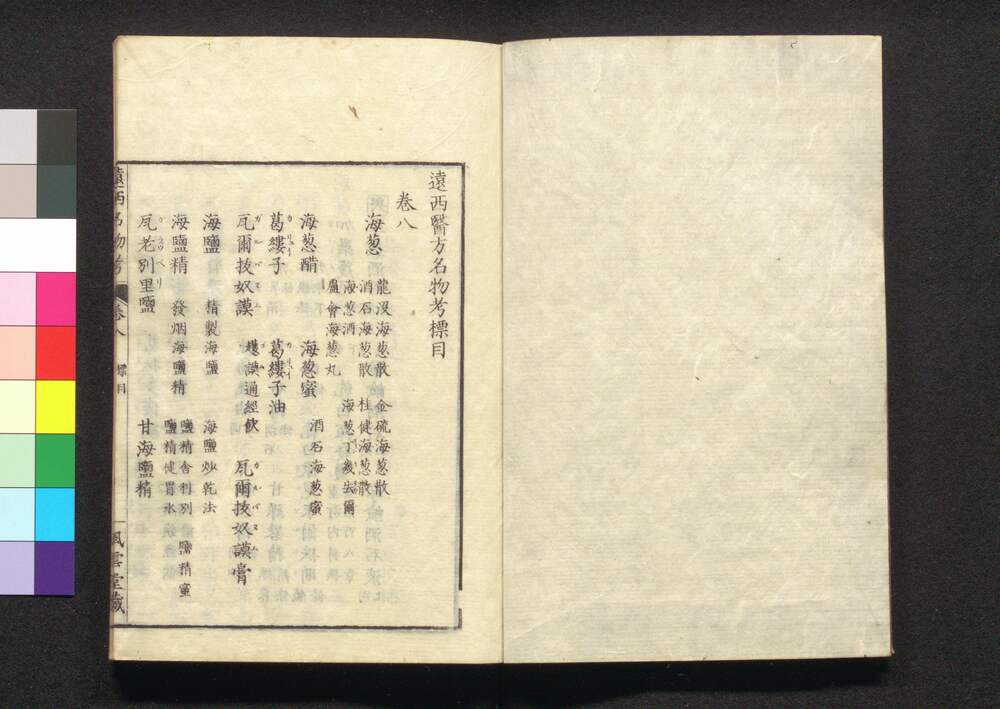 遠西醫方名物考標目
卷八
海葱
龍没海葱散　金硫海葱散
消石海葱散　桂健海葱散
海葱酒　海葱丁幾去爾
蘆會海葱丸
海葱醋　海葱蜜　消石海葱蜜
葛縷子　葛縷子油
瓦爾抜奴謨　謨通經飲　瓦爾抜奴謨膏
海鹽　精製海鹽　海鹽炒乾法
海鹽精　發烟海鹽精　鹽精舎利別　鹽精蜜
鹽精健胃水
瓦老別里鹽　甘海鹽精
遠西名物考　卷八　標目　風雲堂藏